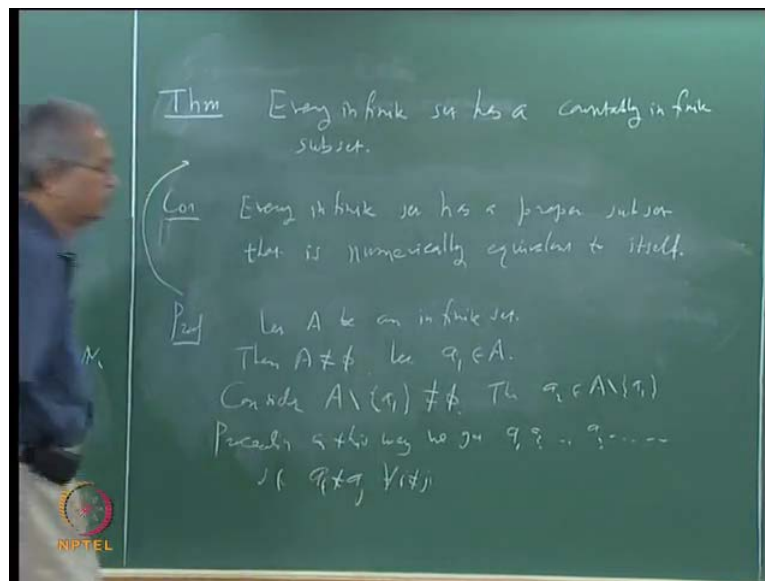 Thm Every infinite set has a countably infinite
subset.
Cor Every infinite set has a proper subset
that is numerically equivalent to itself.
Proof Let A be an infinite set.
Then A ≠ ϕ. Let a₁ ∈ A.
Consider A \ {a₁} ≠ ϕ. Th a₂ ∈ A \ {a₁}
Proceeding in this way we get a₁ a₂ ..
aᵢ ≠ aⱼ ∀ i ≠ j
NPTEL